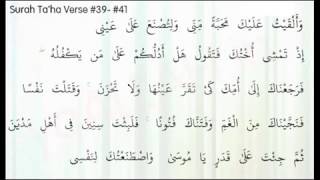 Surah Ta'ha Verse #39- #41
وَأَلْقَيْتُ عَلَيْكَ مَحَبَّةً مِنِّي وَلِتُصْنَعَ عَلَىٰ عَيْنِي
إِذْ تَمْشِي أُخْتُكَ فَتَقُولُ هَلْ أَدُلُّكُمْ عَلَىٰ مَن يَكْفُلُهُ
فَرَجَعْنَاكَ إِلَىٰ أُمِّكَ كَيْ تَقَرَّ عَيْنُهَا وَلَا تَحْزَنَ ۚ وَقَتَلْتَ نَفْسًا
فَنَجَّيْنَاكَ مِنَ الْغَمِّ وَفَتَنَّاكَ فُتُونًا ۚ فَلَبِثْتَ سِنِينَ فِي أَهْلِ مَدْيَنَ
ثُمَّ جِئْتَ عَلَىٰ قَدَرٍ يَا مُوسَىٰ وَاصْطَنَعْتُكَ لِنَفْسِي